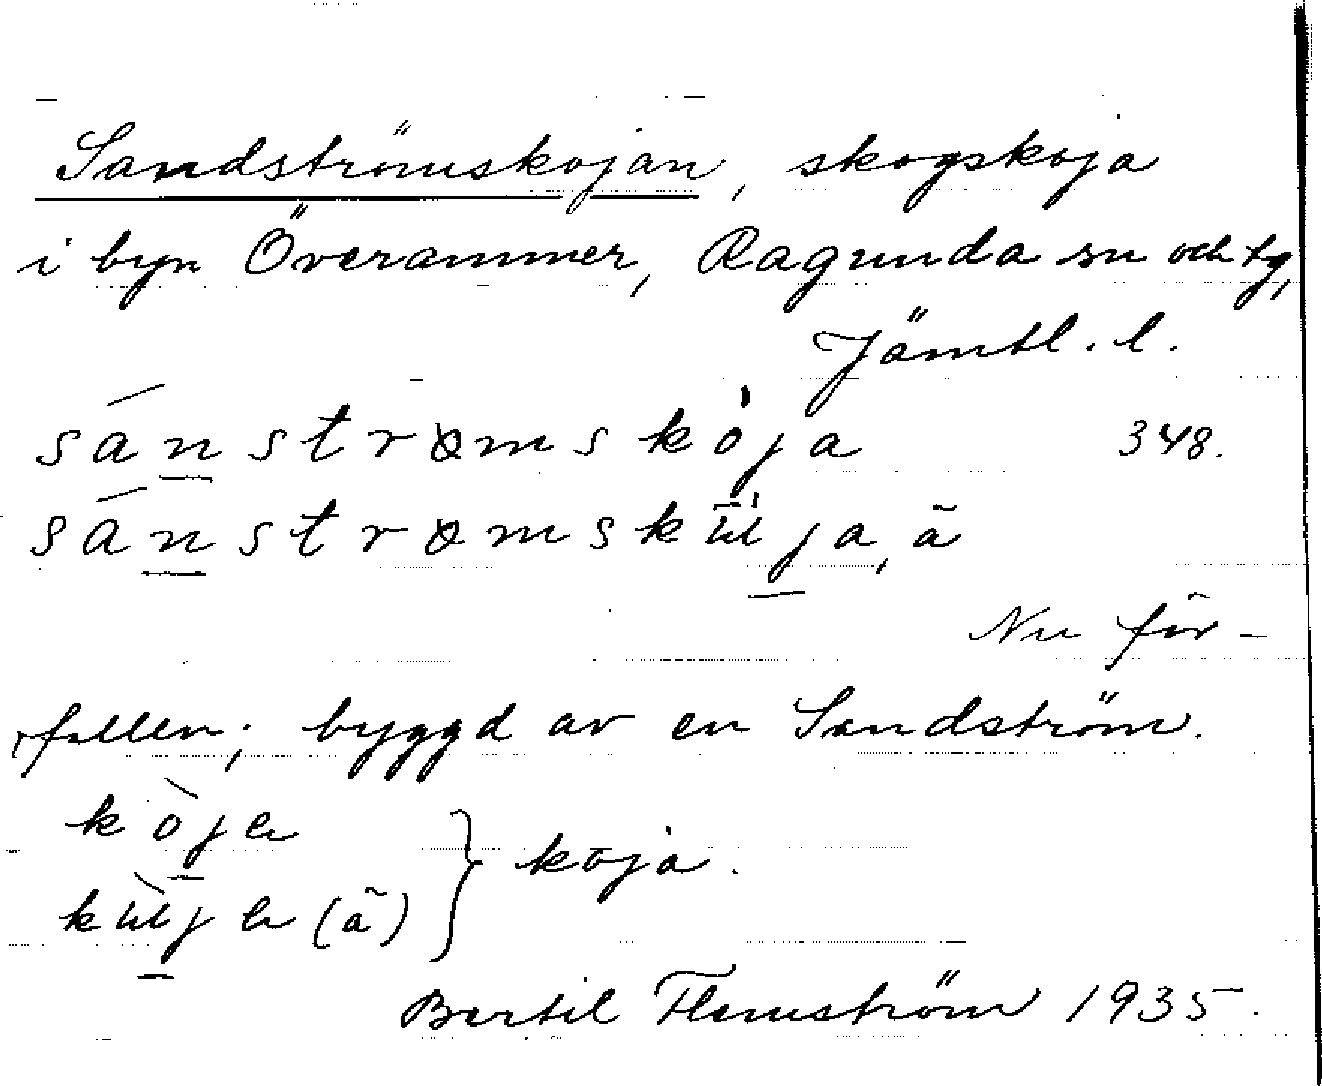 Sandströmskojan, skogskoja
i byn Överammer, Ragunda sn och tg,
Jämtl. l.
sánstrømskòja 348.
sánstrømskʉ̄́ja, ã
Nu för-
fallen; byggd av en Sandström.
kòjɐ
kʉ̀jɐ (ã) } koja.
Bertil Flemström 1935.